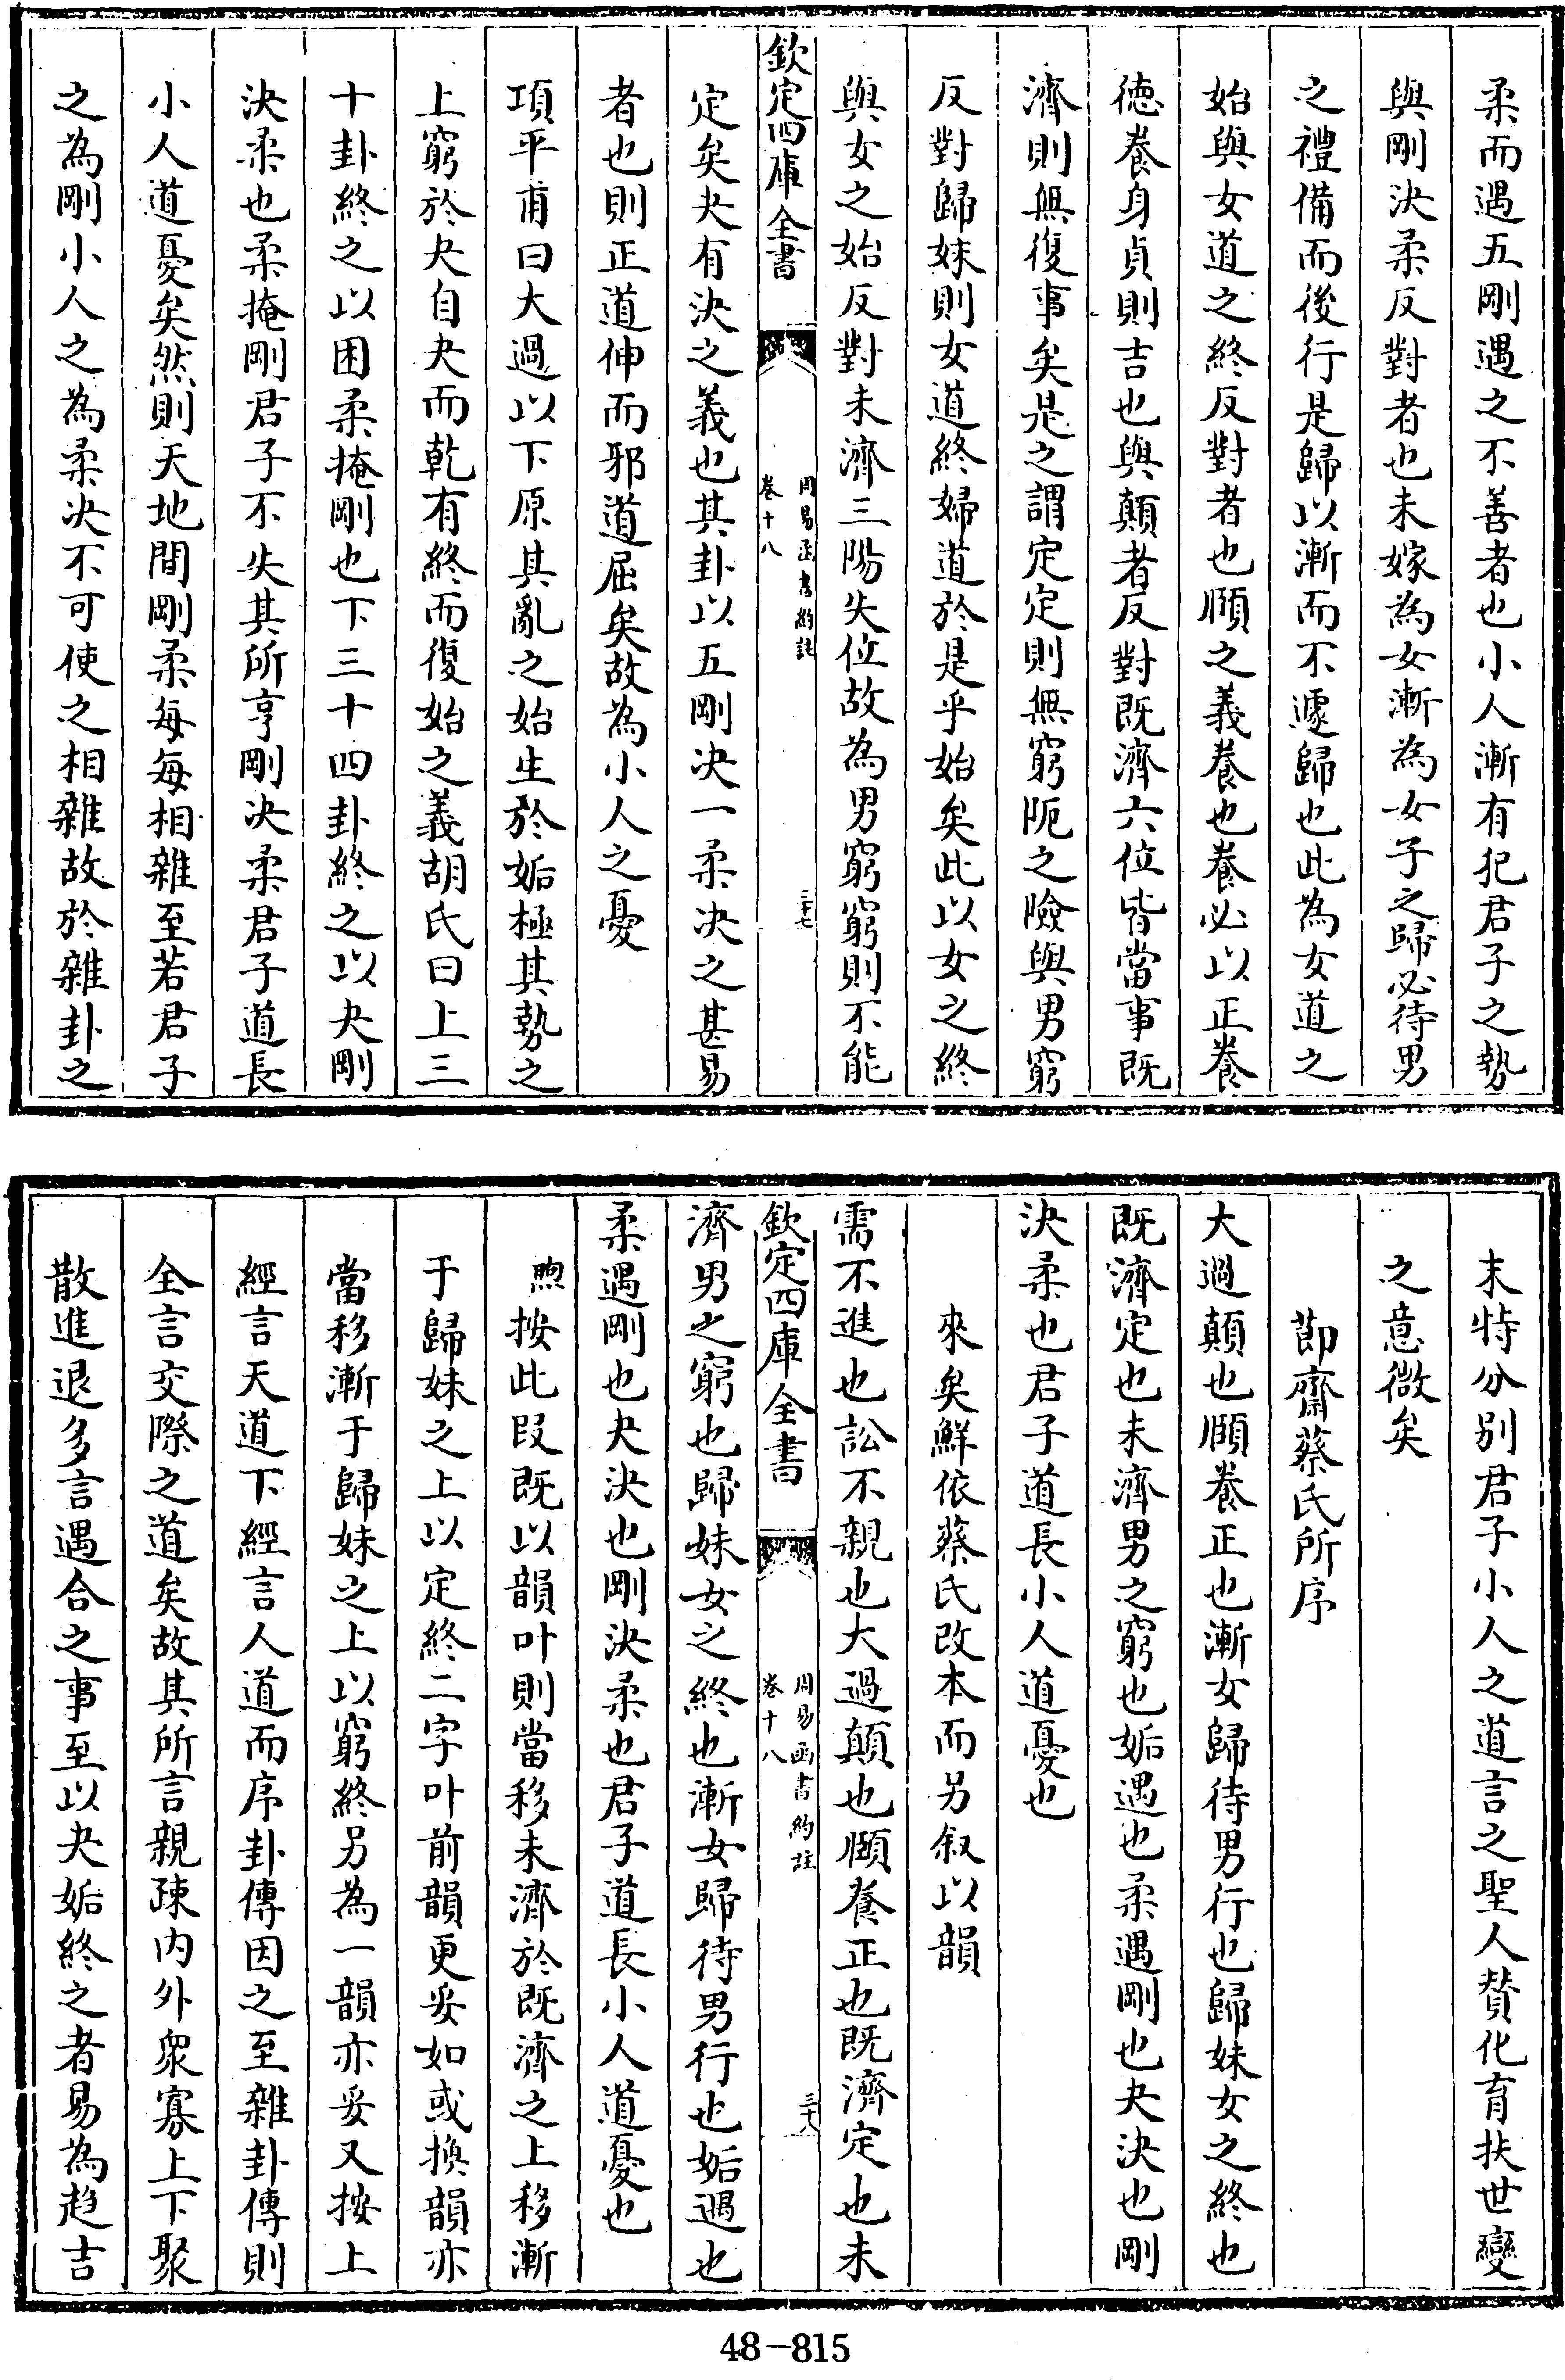 柔而遇五剛遇之不善者也小人漸有犯君子之勢
與剛決柔反對者也未嫁為女漸為女子之歸必待男
之禮備而後行是歸以漸而不遽歸也此為女道之
始與女道之終反對者也頤之義養也養必以正養
德養身貞則吉也與顛者反對既濟六位皆當事既
濟則無復事矣是之謂定定則無窮阨之險與男窮
反對歸妹則女道終婦道於是乎始矣此以女之終
與女之始反對未濟三陽失位故為男窮窮則不能
欽定四庫全書
周易函書約註
卷十八
三十七
定矣夬有決之義也其卦以五剛決一柔決之甚易
者也則正道伸而邪道屈矣故為小人之憂
項平甫曰大過以下原其亂之始生於姤極其勢之
上窮於夬自夬而乾有終而復始之義胡氏曰上三
十卦終之以困柔掩剛也下三十四卦終之以夬剛
決柔也柔掩剛君子不失其所亨剛決柔君子道長
小人道憂矣然則天地間剛柔每每相雜至若君子
之為剛小人之為柔決不可使之相雜故於雜卦之
末特分別君子小人之道言之聖人贊化育扶世變
之意微矣
節齋蔡氏所序
大過顛也頤養正也漸女歸待男行也歸妹女之終也
既濟定也未濟男之窮也姤遇也柔遇剛也夬決也剛
決柔也君子道長小人道憂也
來矣鮮依蔡氏改本而另叙以韻
需不進也訟不親也大過顛也頤養正也既濟定也未
欽定四庫全書
周易函書約註
卷十八
三十八
濟男之窮也歸妹女之終也漸女歸待男行也姤遇也
柔遇剛也夬決也剛決柔也君子道長小人道憂也
煦按此段既以韻叶則當移未濟於既濟之上移漸
于歸妹之上以定終二字叶前韻更妥如或換韻亦
當移漸于歸妹之上以窮終另為一韻亦妥又按上
經言天道下經言人道而序卦傳因之至雜卦傳則
全言交際之道矣故其所言親疎內外衆寡上下聚
散進退多言遇合之事至以夬姤終之者易為趋吉
48-815